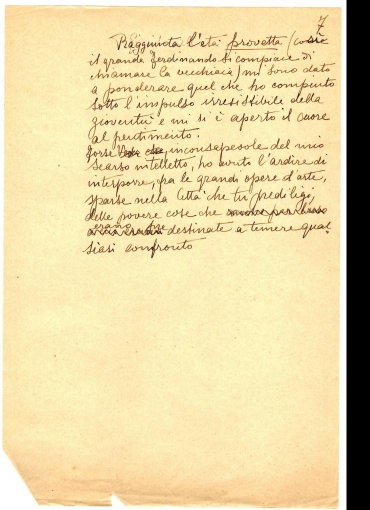 7
Raggiunta l'età provetta (così
il grande Ferdinando si compiace di
chiamare la vecchiaia) mi sono dato
a ponderare quel che ho compiuto
sotto l'impulso irresistibile della
gioventù e mi si è aperto il cuore
al pentimento.
Forse inconsapevole del mio
scarso intelletto, ho avuto l'ardire di
interporre, fra le grandi opere d'arte,
sparse nella Città che tu prediligi,
delle povere cose che
erano destinate a temere qual-
siasi confronto